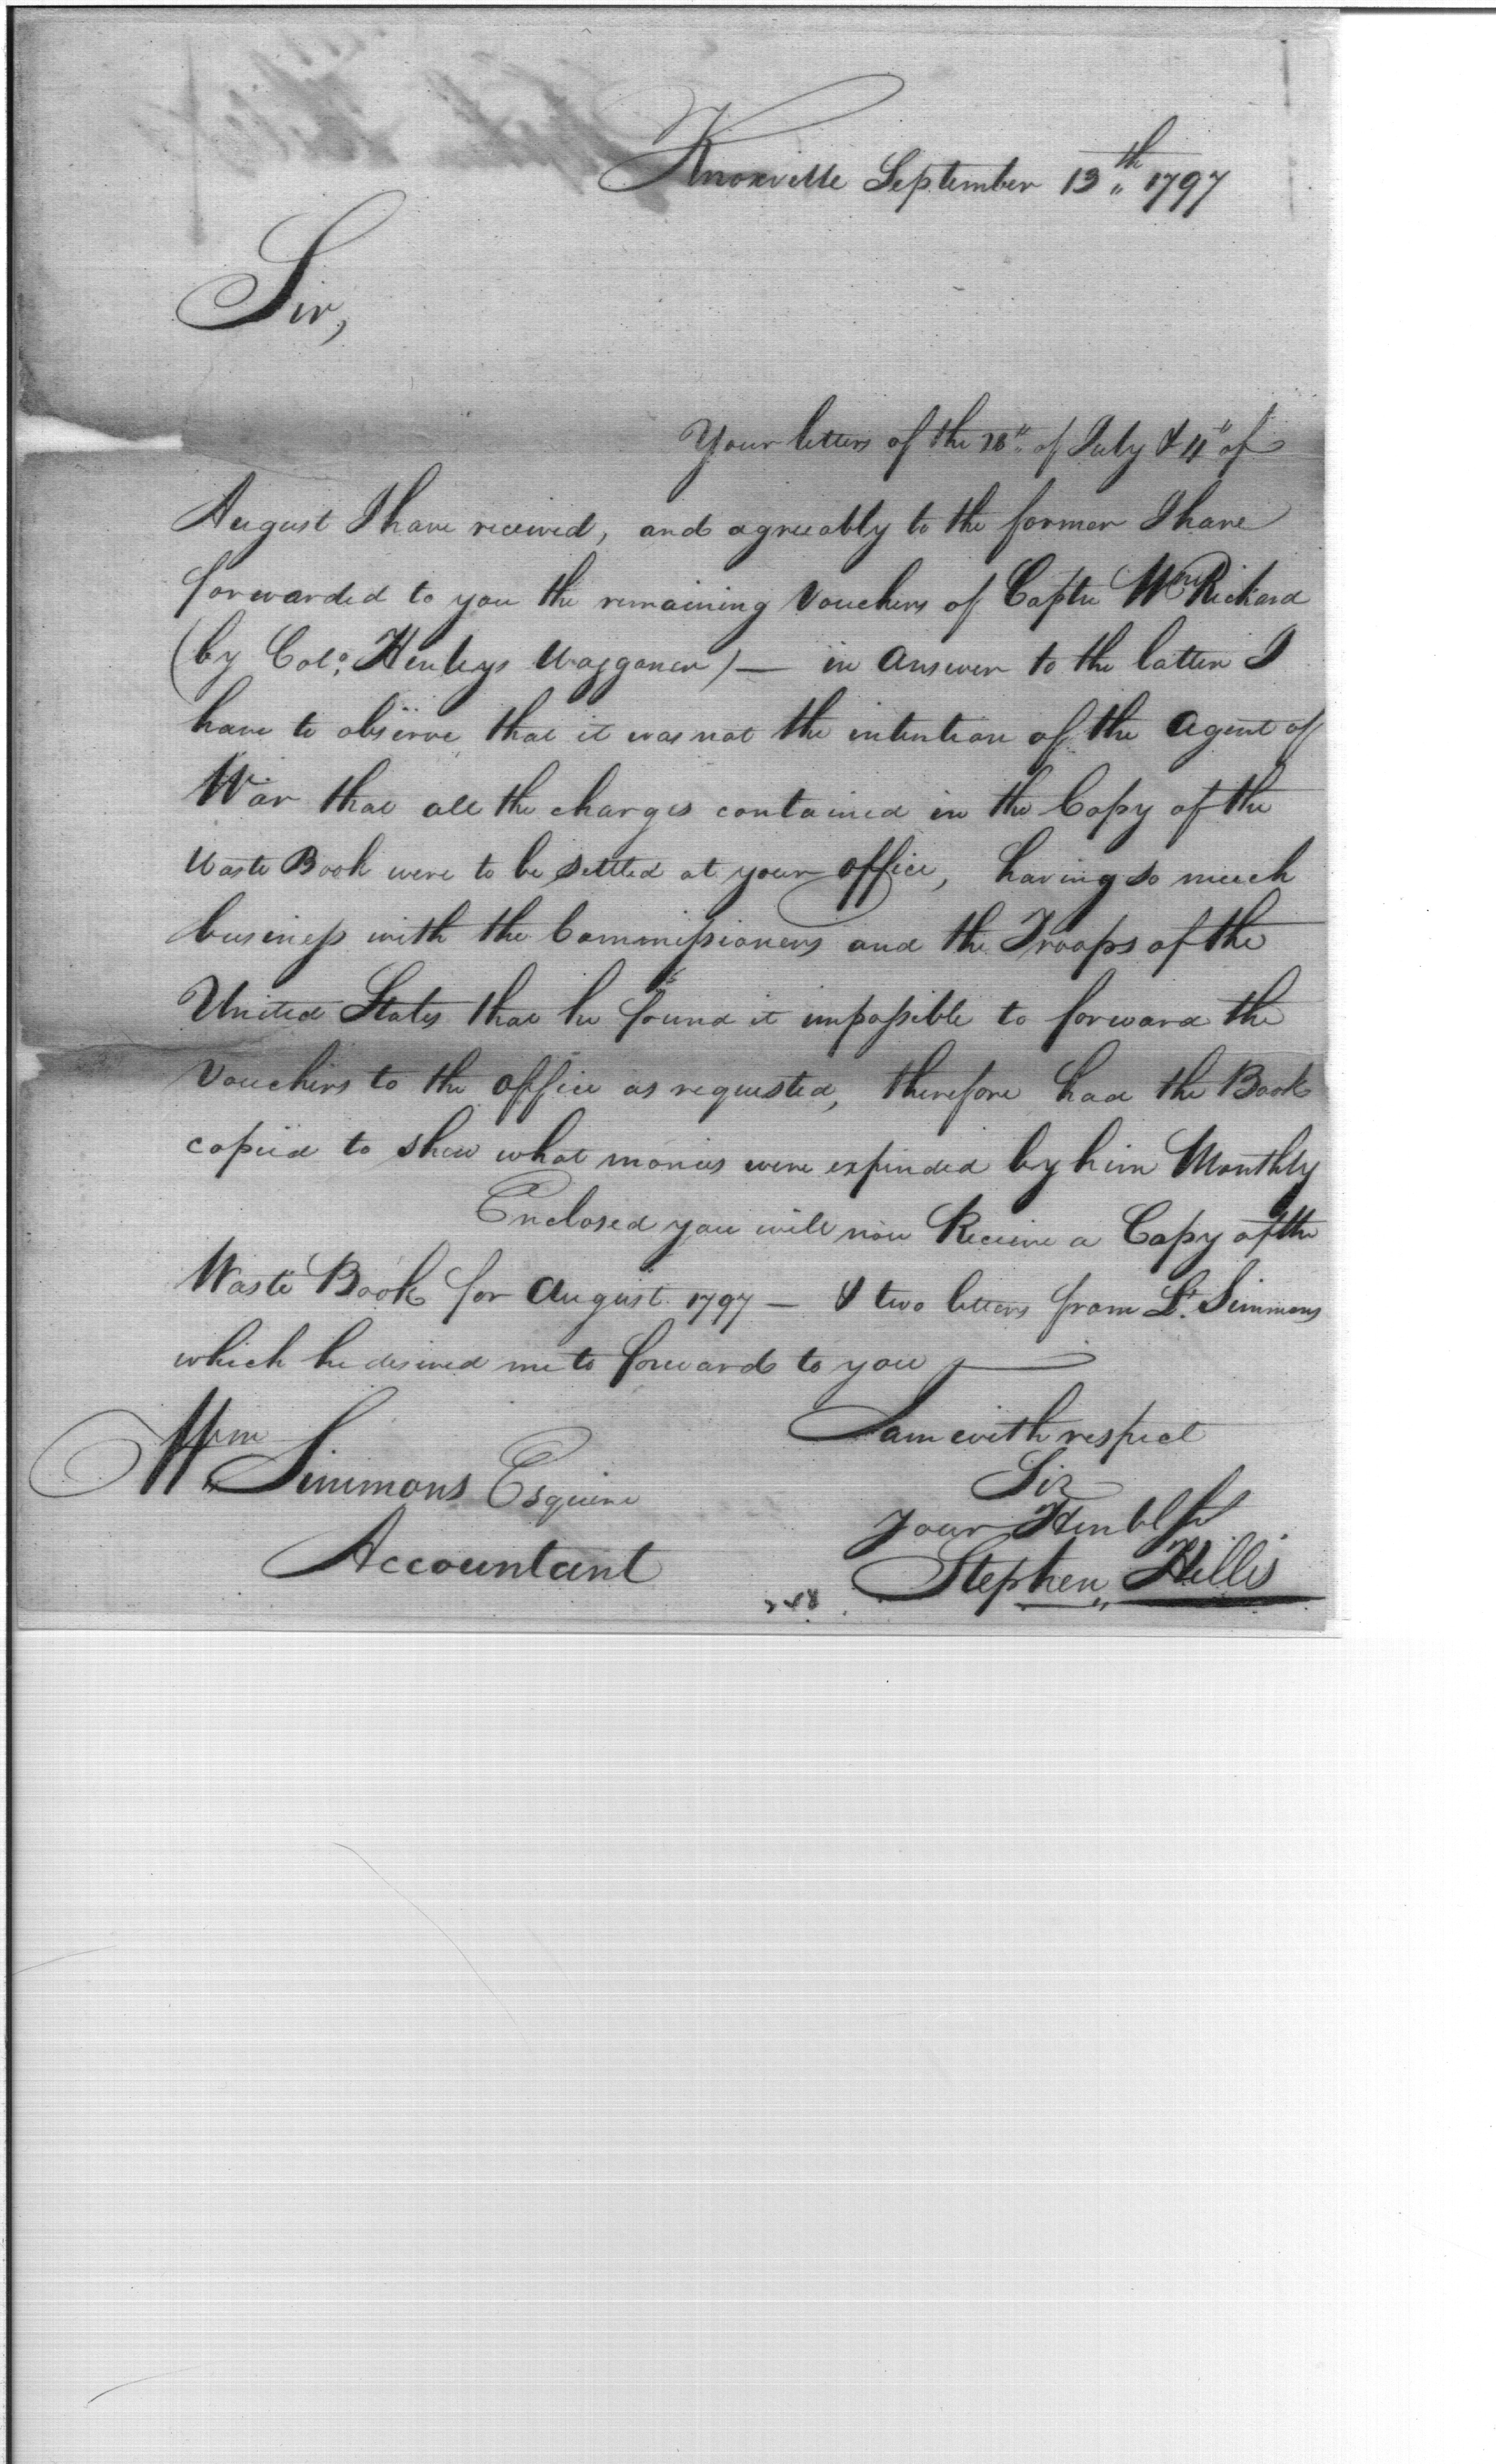 Knoxville September 13th 1797
Sir,
Your letters of the 28" of July & 11" of
August I have received, and agreeably to the former I have
forwarded to you the remaining Vouchers of Captn Wm Rickard
(by Colo. Henleys Waggoner) — in Answer to the latter I
have to observe that it was not the intention of the Agent of
War that all the charges contained in the Copy of the
Waste Book were to be settled at your office, having so much
business with the Commissioners and the Troops of the
United States that he found it impossible to forward the
Vouchers to the office as requested, therefore had the Book
copied to shew what monies were expended by him Monthly
Enclosed you will now Receive a Copy of the
Waste Book for August 1797 — & two letters from Lt. Simmons
which he desired me to forward to you —
I am with respect
Sir
Your Humbl St
Stephen Hillis
Wm Simmons Esquire
Accountant